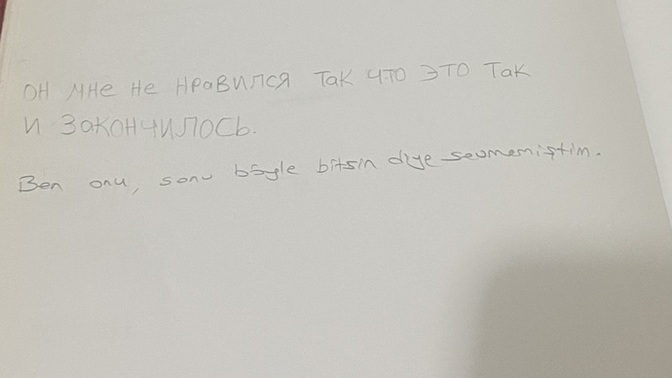 ОН МНе Не НРаВИЛСЯ ТаК ЧТО ЭТО ТаК
И ЗАКОНЧИЛОСЬ.
Ben onu, sonu böyle bitsin diye sevmemiştim.